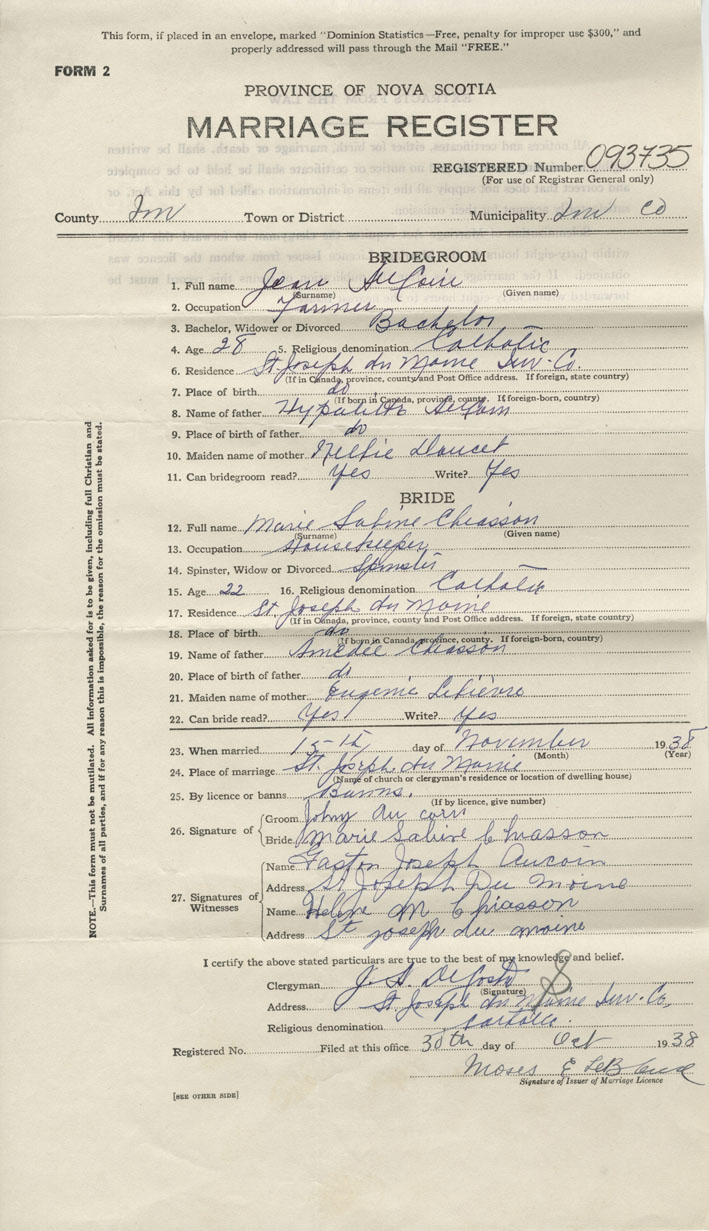 This form, if placed in an envelope, marked "Dominion Statistics—Free, penalty for improper use $300," and
properly addressed will pass through the Mail "FREE."
FORM 2
PROVINCE OF NOVA SCOTIA
MARRIAGE REGISTER
REGISTERED Number 093735
(For use of Registrar General only)
County Inv Town or District Municipality Inv Co
BRIDEGROOM
1. Full name Jean AuCoin
(Surname) (Given name)
2. Occupation Farmer
3. Bachelor, Widower or Divorced Bachelor
4. Age 28 5. Religious denomination Catholic
6. Residence St Joseph du Moine Inv. Co.
(If in Canada, province, county and Post Office address. If foreign, state country)
7. Place of birth do
(If born in Canada, province, county. If foreign-born, country)
8. Name of father Hypolitte AuCoin
9. Place of birth of father do
10. Maiden name of mother Nellie Doucet
11. Can bridegroom read? Yes Write? Yes
BRIDE
12. Full name Marie Sabine Chiasson
(Surname) (Given name)
13. Occupation Housekeeper
14. Spinster, Widow or Divorced Spinster
15. Age 22 16. Religious denomination Catholic
17. Residence St Joseph du Moine
(If in Canada, province, county and Post Office address. If foreign, state country)
18. Place of birth do
(If born in Canada, province, county. If foreign-born, country)
19. Name of father Amédée Chiasson
20. Place of birth of father do
21. Maiden name of mother Eugenie Lefievre
22. Can bride read? Yes Write? Yes
23. When married 15th day of November 1938
(Month) (Year)
24. Place of marriage St. Joseph du Moine
(Name of church or clergyman's residence or location of dwelling house)
25. By licence or banns Banns.
(If by licence, give number)
26. Signature of Groom Johny Au coin
Bride Marie Sabine Chiasson
27. Signatures of Witnesses
Name Gaston Joseph Aucoin
Address St Joseph Du Moine
Name Helene M Chiasson
Address St joseph du moine
I certify the above stated particulars are true to the best of my knowledge and belief.
Clergyman J. A. DeCoste
(Signature)
Address St Joseph du Moine Inv. Co,
Religious denomination Catholic.
Registered No. Filed at this office 30th day of Oct 1938
Moses E LeBlanc
Signature of Issuer of Marriage Licence
[SEE OTHER SIDE]
NOTE.—This form must not be mutilated. All information asked for is to be given, including full Christian and
Surnames of all parties, and if for any reason this is impossible, the reason for the omission must be stated.